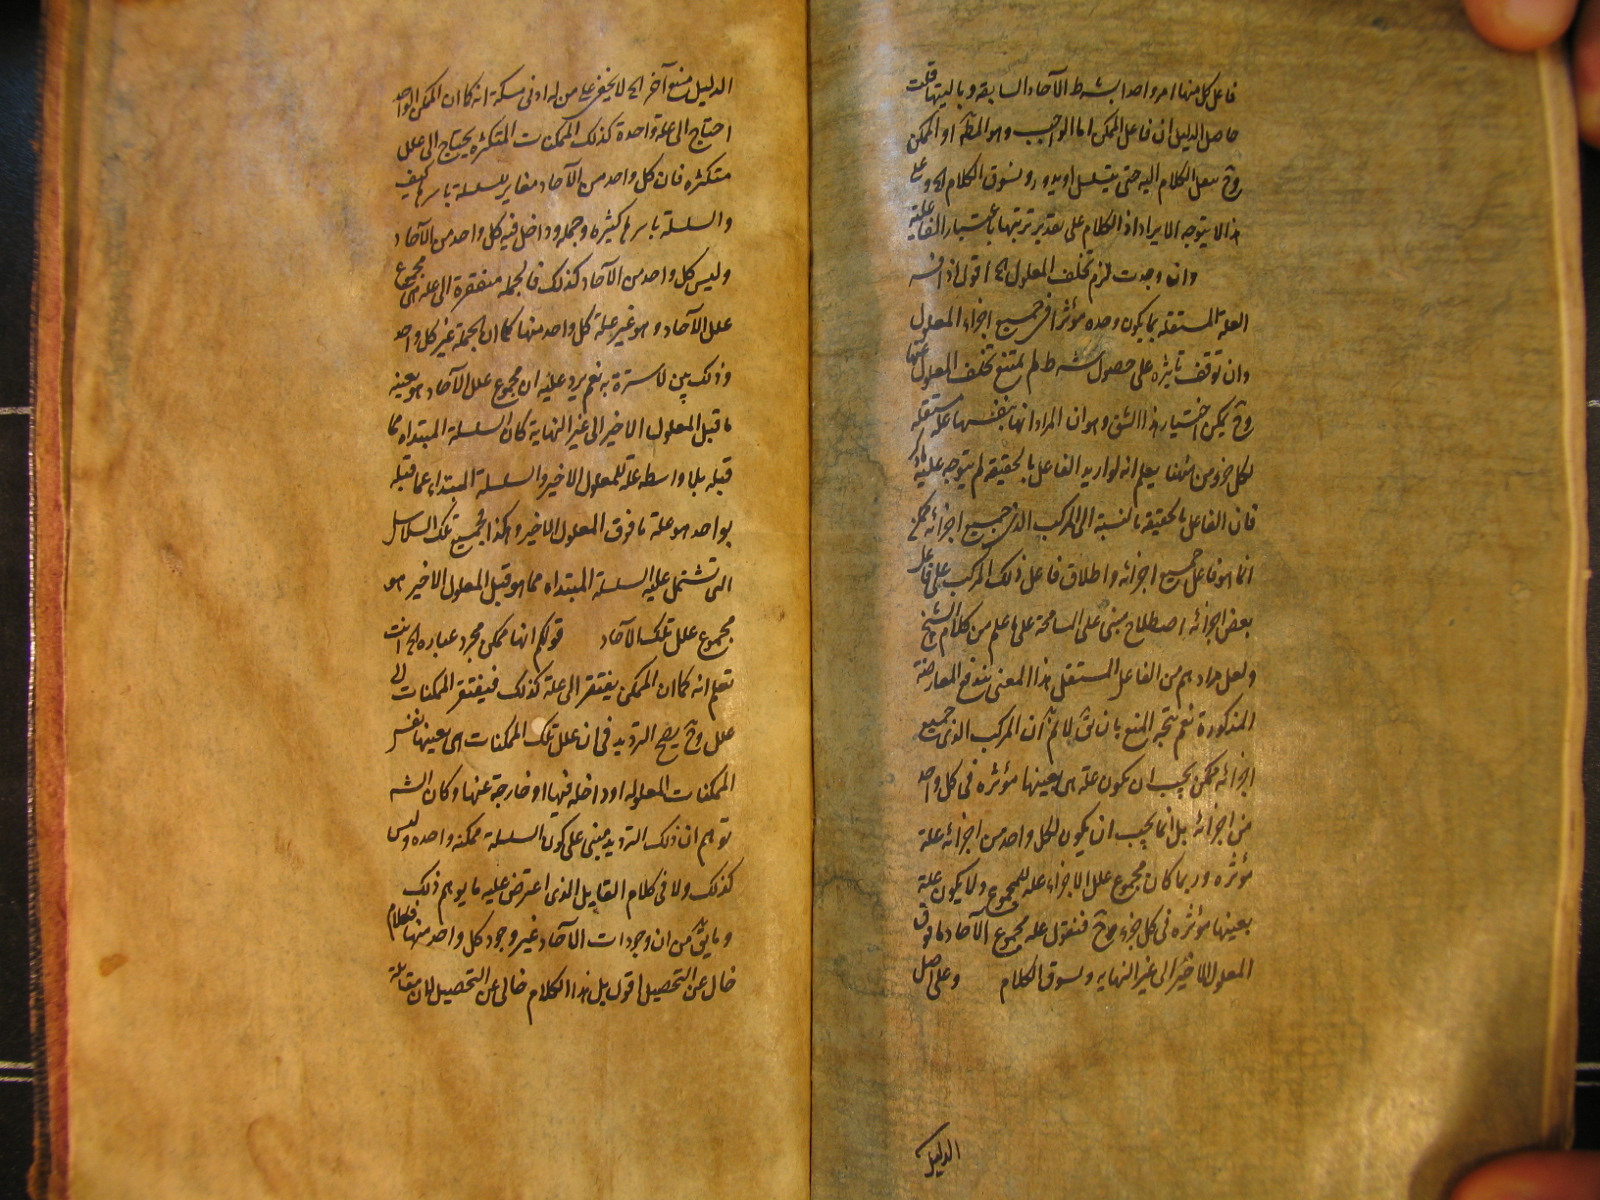 فاعل كل منها امر واحدا بشرط الآحاد السابقه وباليتها قلت
حاصل الدليل ان فاعل الممكن اما الواجب وهو المط او الممكن
وح ينقل الكلام اليه حتى يتسلسل او يدور ونسوق الكلام الخ وعلى
هذا لا يتوجه الايراد اذ الكلام على تقدير ترتبها باعتبار الفاعلية
وان وجدت لزم تخلف المعلول الخ اقول اذا فسر
العلة المستقله بما يكون وحده مؤثرا فى جميع اجزاء المعلول
وان توقف تاثيره على حصول شرط لم يمتنع تخلف المعلول عنها
وح يمكن اختيار هذا الشق وهو ان المراد انها بنفسها علة مستقله
لكل جزء ومن هنا يعلم انه لو اريد الفاعل بالحقيقه لم يتوجه عليه
فان الفاعل بالحقيقه بالنسبة الى المركب الذى جميع اجزائه ممكن
انما هو فاعل جميع اجزائه واطلاق فاعل ذلك المركب على فاعل
بعض اجزائه اصطلاح مبنى على المسامحة على ما علم من كلام الشيخ
ولعل مرادهم من الفاعل المستقل هذا المعنى يندفع المعارضة
المذكورة نعم يتجه المنع بان يق لا نم ان المركب الذى جميع
اجزائه ممكن يجب ان يكون علة هى بعينها مؤثره فى كل واحد
من اجزائه بل انما يجب ان يكون لكل واحد من اجزائه علة
مؤثره وربما كان مجموع علل الاجزاء علة للمجموع ولا يكون علة
بعينها مؤثره فى كل جزء وح فنقول علة مجموع الآحاد ما فوق
المعلول الاخير الى غير النهايه ونسوق الكلام وعلى اصل
الدليل
الدليل منع آخر الخ لا يخفى على من له ادنى مسكة انه كما ان الممكن الواحد
احتاج الى علة واحدة كذلك الممكنات المتكثره يحتاج الى علل
متكثره فان كل واحد من الآحاد مغاير للسلسلة باسرها كيف
والسلسلة باسرها كثيره وجمله وداخل فيه كل واحد من الآحاد
وليس كل واحد من الآحاد كذلك فالجمله مفتقرة الى علة هى مجموع
علل الآحاد وهو غير علة كل واحد منها كما ان الجملة غير كل واحد
وذلك بين لا سترة به نعم يرد عليه ان مجموع علل الآحاد هو بعينه
ما قبل المعلول الاخير الى غير النهاية كان السلسلة المبتداه مما
قبله بلا واسطه علة للمعلول الاخير والسلسلة المبتداء عما قبله
بواحد هو علة ما فوق المعلول الاخير وهكذا فجميع تلك السلاسل
التى تشتمل عليه السلسلة المبتداه مما هو قبل المعلول الاخير هو
مجموع علل تلك الآحاد قولكم انها ممكن مجرد عباره الخ انت
تعلم انه كما ان الممكن يفتقر الى علة كذلك فيفتقر الممكنات الى
علل وح يصح الترديد فى ان علل تلك الممكنات هى بعينها نفس
الممكنات المعلوله او داخله فيها او خارجة عنها وكان الشه
توهم ان ذلك الترديد مبنى على كون السلسلة ممكنه واحده وليس
كذلك ولا فى كلام القايل الذى اعترض عليه ما يوهم ذلك
وما يق من ان وجودات الآحاد غير وجود كل واحد منها فكلام
خال عن التحصيل اقول بل هذا الكلام خالى عن التحصيل لان مقابلة